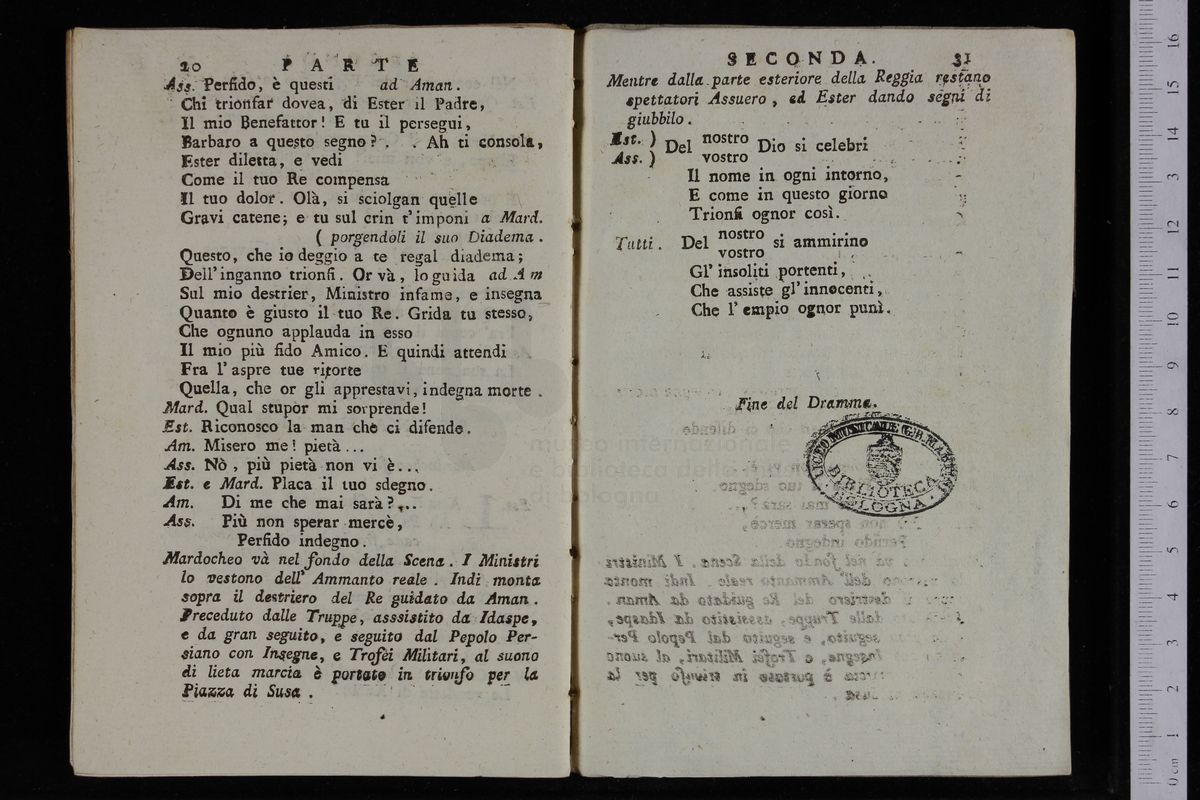 20 PARTE
Ass. Perfido, è questi ad Aman.
Chi trionfar dovea, di Ester il Padre,
Il mio Benefattor! E tu il persegui,
Barbaro a questo segno? . . Ah ti consola,
Ester diletta, e vedi
Come il tuo Re compensa
Il tuo dolor. Olà, si sciolgan quelle
Gravi catene; e tu sul crin t'imponi a Mard.
( porgendoli il suo Diadema.
Questo, che io deggio a te regal diadema;
Dell'inganno trionfi. Or và, lo guida ad Am
Sul mio destrier, Ministro infame, e insegna
Quanto è giusto il tuo Re. Grida tu stesso,
Che ognuno applauda in esso
Il mio più fido Amico. E quindi attendi
Fra l'aspre tue ritorte
Quella, che or gli apprestavi, indegna morte.
Mard. Qual stupor mi sorprende!
Est. Riconosco la man che ci difende.
Am. Misero me! pietà...
Ass. Nò, più pietà non vi è...
Est. e Mard. Placa il tuo sdegno.
Am. Di me che mai sarà?...
Ass. Più non sperar mercè,
Perfido indegno.
Mardocheo và nel fondo della Scena. I Ministri
lo vestono dell'Ammanto reale. Indi monta
sopra il destriero del Re guidato da Aman.
Preceduto dalle Truppe, asssistito da Idaspe,
e da gran seguito, e seguito dal Pepolo Per-
siano con Insegne, e Trofèi Militari, al suono
di lieta marcia è portato in trionfo per la
Piazza di Susa.
SECONDA. 31
Mentre dalla parte esteriore della Reggia restano
spettatori Assuero, ed Ester dando segni di
giubbilo.
Est. ) Del nostro Dio si celebri
Ass. ) vostro
Il nome in ogni intorno,
E come in questo giorno
Trionfi ognor così.
Tutti. Del nostro si ammirino
vostro
Gl'insoliti portenti,
Che assiste gl'innocenti,
Che l'empio ognor punì.
Fine del Dramma.
LICEO MUSICALE G.B. MARTINI
BIBLIOTECA
BOLOGNA
museo internazionale
e biblioteca della musica
di bologna